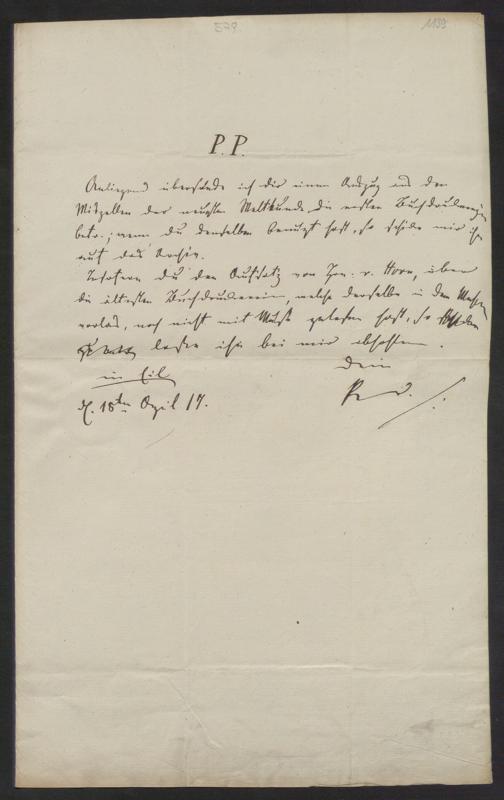 579
1139
P. P.
Anliegend übersende ich dir einen Auszug aus den
Miszellen der neusten Weltkunde, die ersten Buchdrucker
betr.; wenn du denselben benuzt hast, so schicke mir ihn
auf das Archiv.
Insofern du den Aufsatz von Hrn. v. Horn, über
die ältesten Buchdruckereien, welche derselbe in den
vorlas, noch nicht mit Muße gelesen hast, so
lasse ihn bei mir abholen.
in Eil
Dein
d. 18ten April 17.